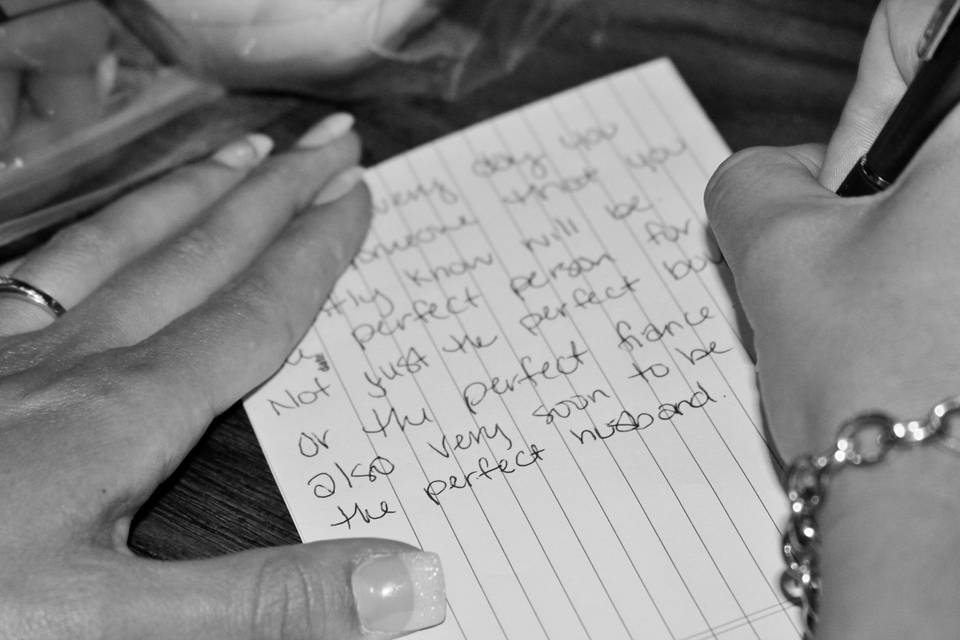 very day you
someone that you
tly know will be
perfect person for
Not just the perfect bo
or the perfect fiance
also very soon to be
the perfect husband.